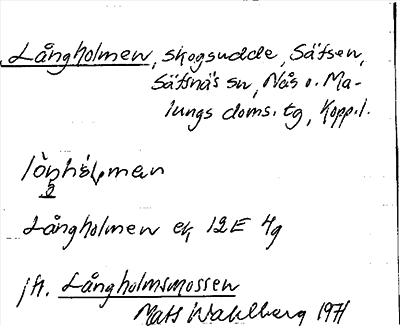 Långholmen, skogsudde, Sätsen,
Sätsnäs sn, Nås o. Ma-
lungs doms. tg, Kopp.l.
Långholmen ek 12E 4g
jfr. Långholmsmossen
Mats Wahlberg 1971